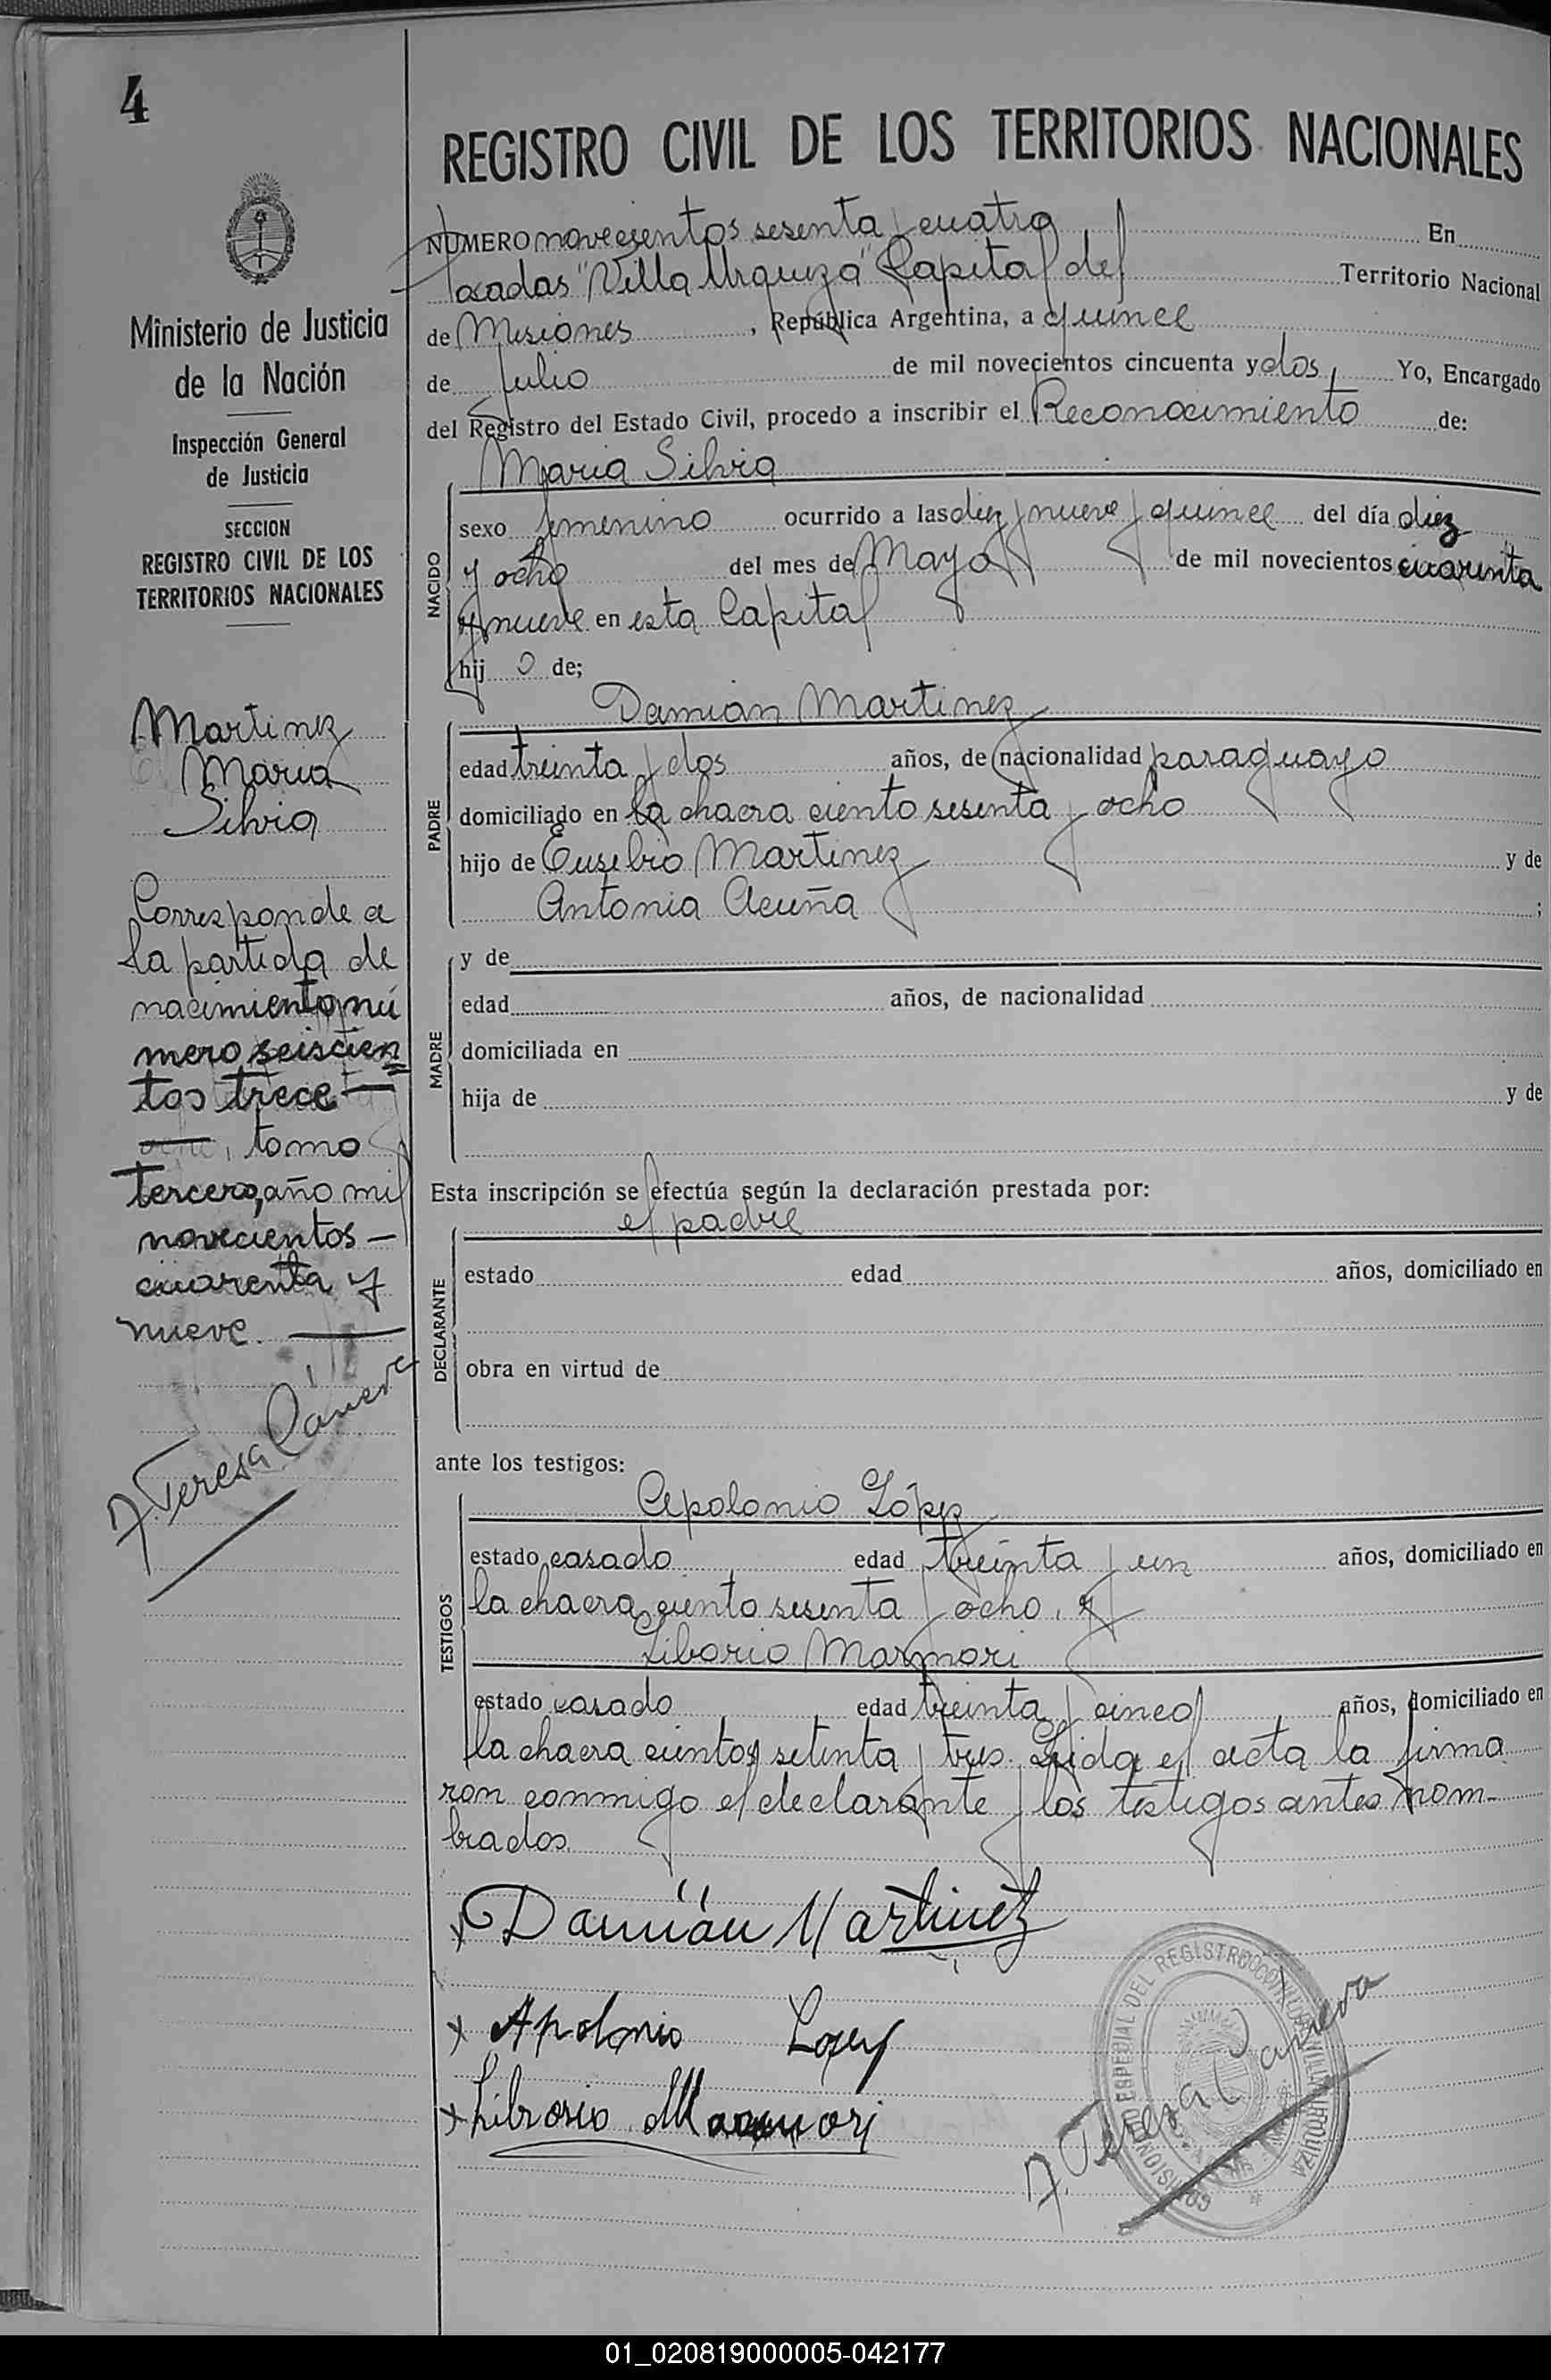 4
REGISTRO CIVIL DE LOS TERRITORIOS NACIONALES
Ministerio de Justicia
de la Nación
Inspección General
de Justicia
SECCION
REGISTRO CIVIL DE LOS
TERRITORIOS NACIONALES
Martinez
Maria
Silvia
Corresponde a
la partida de
nacimiento nú
mero seiscien=
tos trece —
, tomo
tercero, año mil
novecientos —
cuarenta y
nueve. —
A. Teresa Cáneva
NÚMERO novecientos sesenta y cuatro En
Posadas "Villa Urquiza" Capital del Territorio Nacional
de Misiones, República Argentina, a quince
de Julio de mil novecientos cincuenta y dos, Yo, Encargado
del Registro del Estado Civil, procedo a inscribir el Reconocimiento de:
Maria Silvia
NACIDO
sexo femenino ocurrido a las diez y nueve y quince del día diez
y ocho del mes de Mayo de mil novecientos cuarenta
y nueve en esta Capital
hijo de;
Damián Martinez
PADRE
edad treinta y dos años, de nacionalidad paraguayo
domiciliado en la chacra ciento sesenta y ocho
hijo de Eusebio Martinez y de
Antonia Acuña ;
MADRE
y de
edad años, de nacionalidad
domiciliada en
hija de y de
Esta inscripción se efectúa según la declaración prestada por:
el padre
DECLARANTE
estado edad años, domiciliado en
obra en virtud de
ante los testigos:
Apolonio López
TESTIGOS
estado casado edad treinta y un años, domiciliado en
la chacra ciento sesenta y ocho, y
Liborio Marmori
estado casado edad treinta y cinco años, domiciliado en
la chacra cientos setenta y tres. Leida el acta la firma
ron conmigo el declarante y los testigos antes nom-
brados.
x Damián Martinez
x Apolonio Lopez
x Librorio Marmori
A. Teresa Cáneva
ESPECIAL DEL REGISTRO CIVIL DE VILLA URQUIZA
01_020819000005-042177